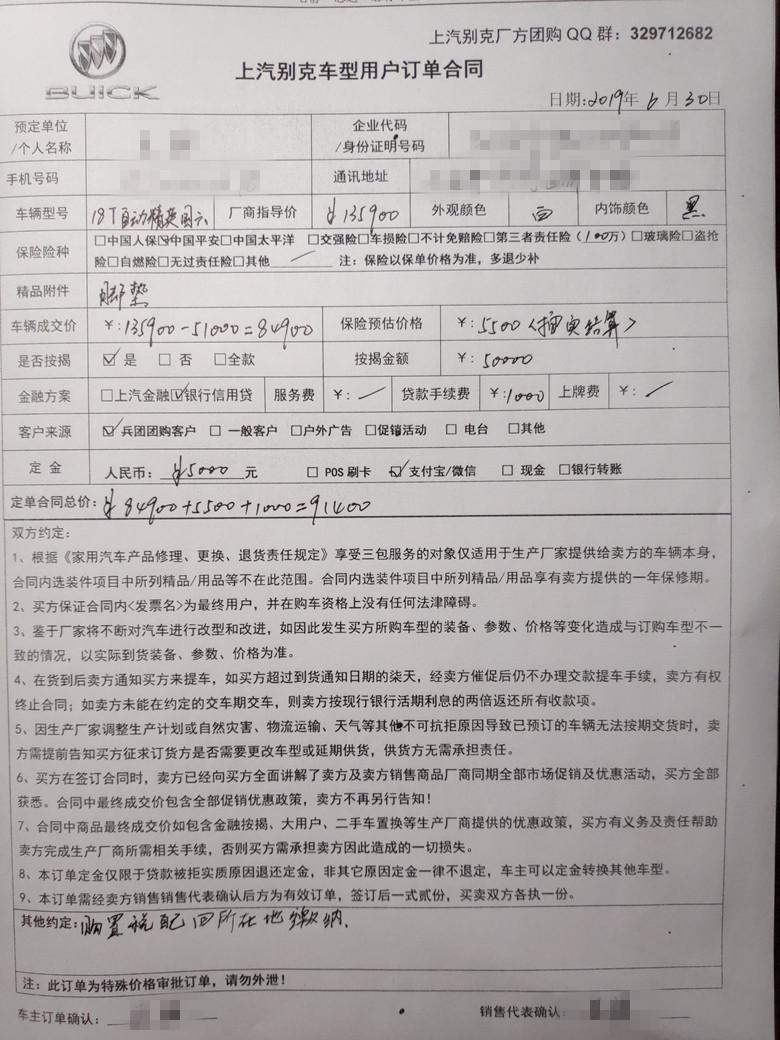 上汽别克厂方团购QQ群：329712682
BUICK
上汽别克车型用户订单合同
日期:2019年6月30日
预定单位/个人名称 企业代码/身份证明号码
手机号码 通讯地址
车辆型号 18T自动精英国六 厂商指导价 ¥135900 外观颜色 白 内饰颜色 黑
保险险种 ☐中国人保☑中国平安☐中国太平洋 ☐交强险☐车损险☐不计免赔险☐第三者责任险（100万）☐玻璃险☐盗抢
险☐自燃险☐无过责任险☐其他 注：保险以保单价格为准，多退少补
精品附件 脚垫
车辆成交价 ¥:135900-51000=84900 保险预估价格 ¥:5500（据实结算）
是否按揭 ☑是 ☐否 ☐全款 按揭金额 ¥:50000
金融方案 ☐上汽金融☑银行信用贷 服务费 ¥:／ 贷款手续费 ¥:1000 上牌费 ¥:／
客户来源 ☑兵团团购客户 ☐一般客户 ☐户外广告 ☐促销活动 ☐电台 ☐其他
定 金 人民币：¥5000 元 ☐POS刷卡 ☑支付宝/微信 ☐现金 ☐银行转账
定单合同总价：¥84900+5500+1000=91400
双方约定：
1、根据《家用汽车产品修理、更换、退货责任规定》享受三包服务的对象仅适用于生产厂家提供给卖方的车辆本身，
合同内选装件项目中所列精品/用品等不在此范围。合同内选装件项目中所列精品/用品享有卖方提供的一年保修期。
2、买方保证合同内<发票名>为最终用户，并在购车资格上没有任何法律障碍。
3、鉴于厂家将不断对汽车进行改型和改进，如因此发生买方所购车型的装备、参数、价格等变化造成与订购车型不一
致的情况，以实际到货装备、参数、价格为准。
4、在货到后卖方通知买方来提车，如买方超过到货通知日期的柒天，经卖方催促后仍不办理交款提车手续，卖方有权
终止合同；如卖方未能在约定的交车期交车，则卖方按现行银行活期利息的两倍返还所有收款项。
5、因生产厂家调整生产计划或自然灾害、物流运输、天气等其他不可抗拒原因导致已预订的车辆无法按期交货时，卖
方需提前告知买方征求订货方是否需要更改车型或延期供货，供货方无需承担责任。
6、买方在签订合同时，卖方已经向买方全面讲解了卖方及卖方销售商品厂商同期全部市场促销及优惠活动，买方全部
获悉。合同中最终成交价包含全部促销优惠政策，卖方不再另行告知！
7、合同中商品最终成交价如包含金融按揭、大用户、二手车置换等生产厂商提供的优惠政策，买方有义务及责任帮助
卖方完成生产厂商所需相关手续，否则买方需承担卖方因此造成的一切损失。
8、本订单定金仅限于贷款被拒实质原因退还定金，非其它原因定金一律不退定，车主可以定金转换其他车型。
9、本订单需经卖方销售销售代表确认后方为有效订单，签订后一式贰份，买卖双方各执一份。
其他约定:购置税配回所在地缴纳.
注：此订单为特殊价格审批订单，请勿外泄！
车主订单确认： 销售代表确认：